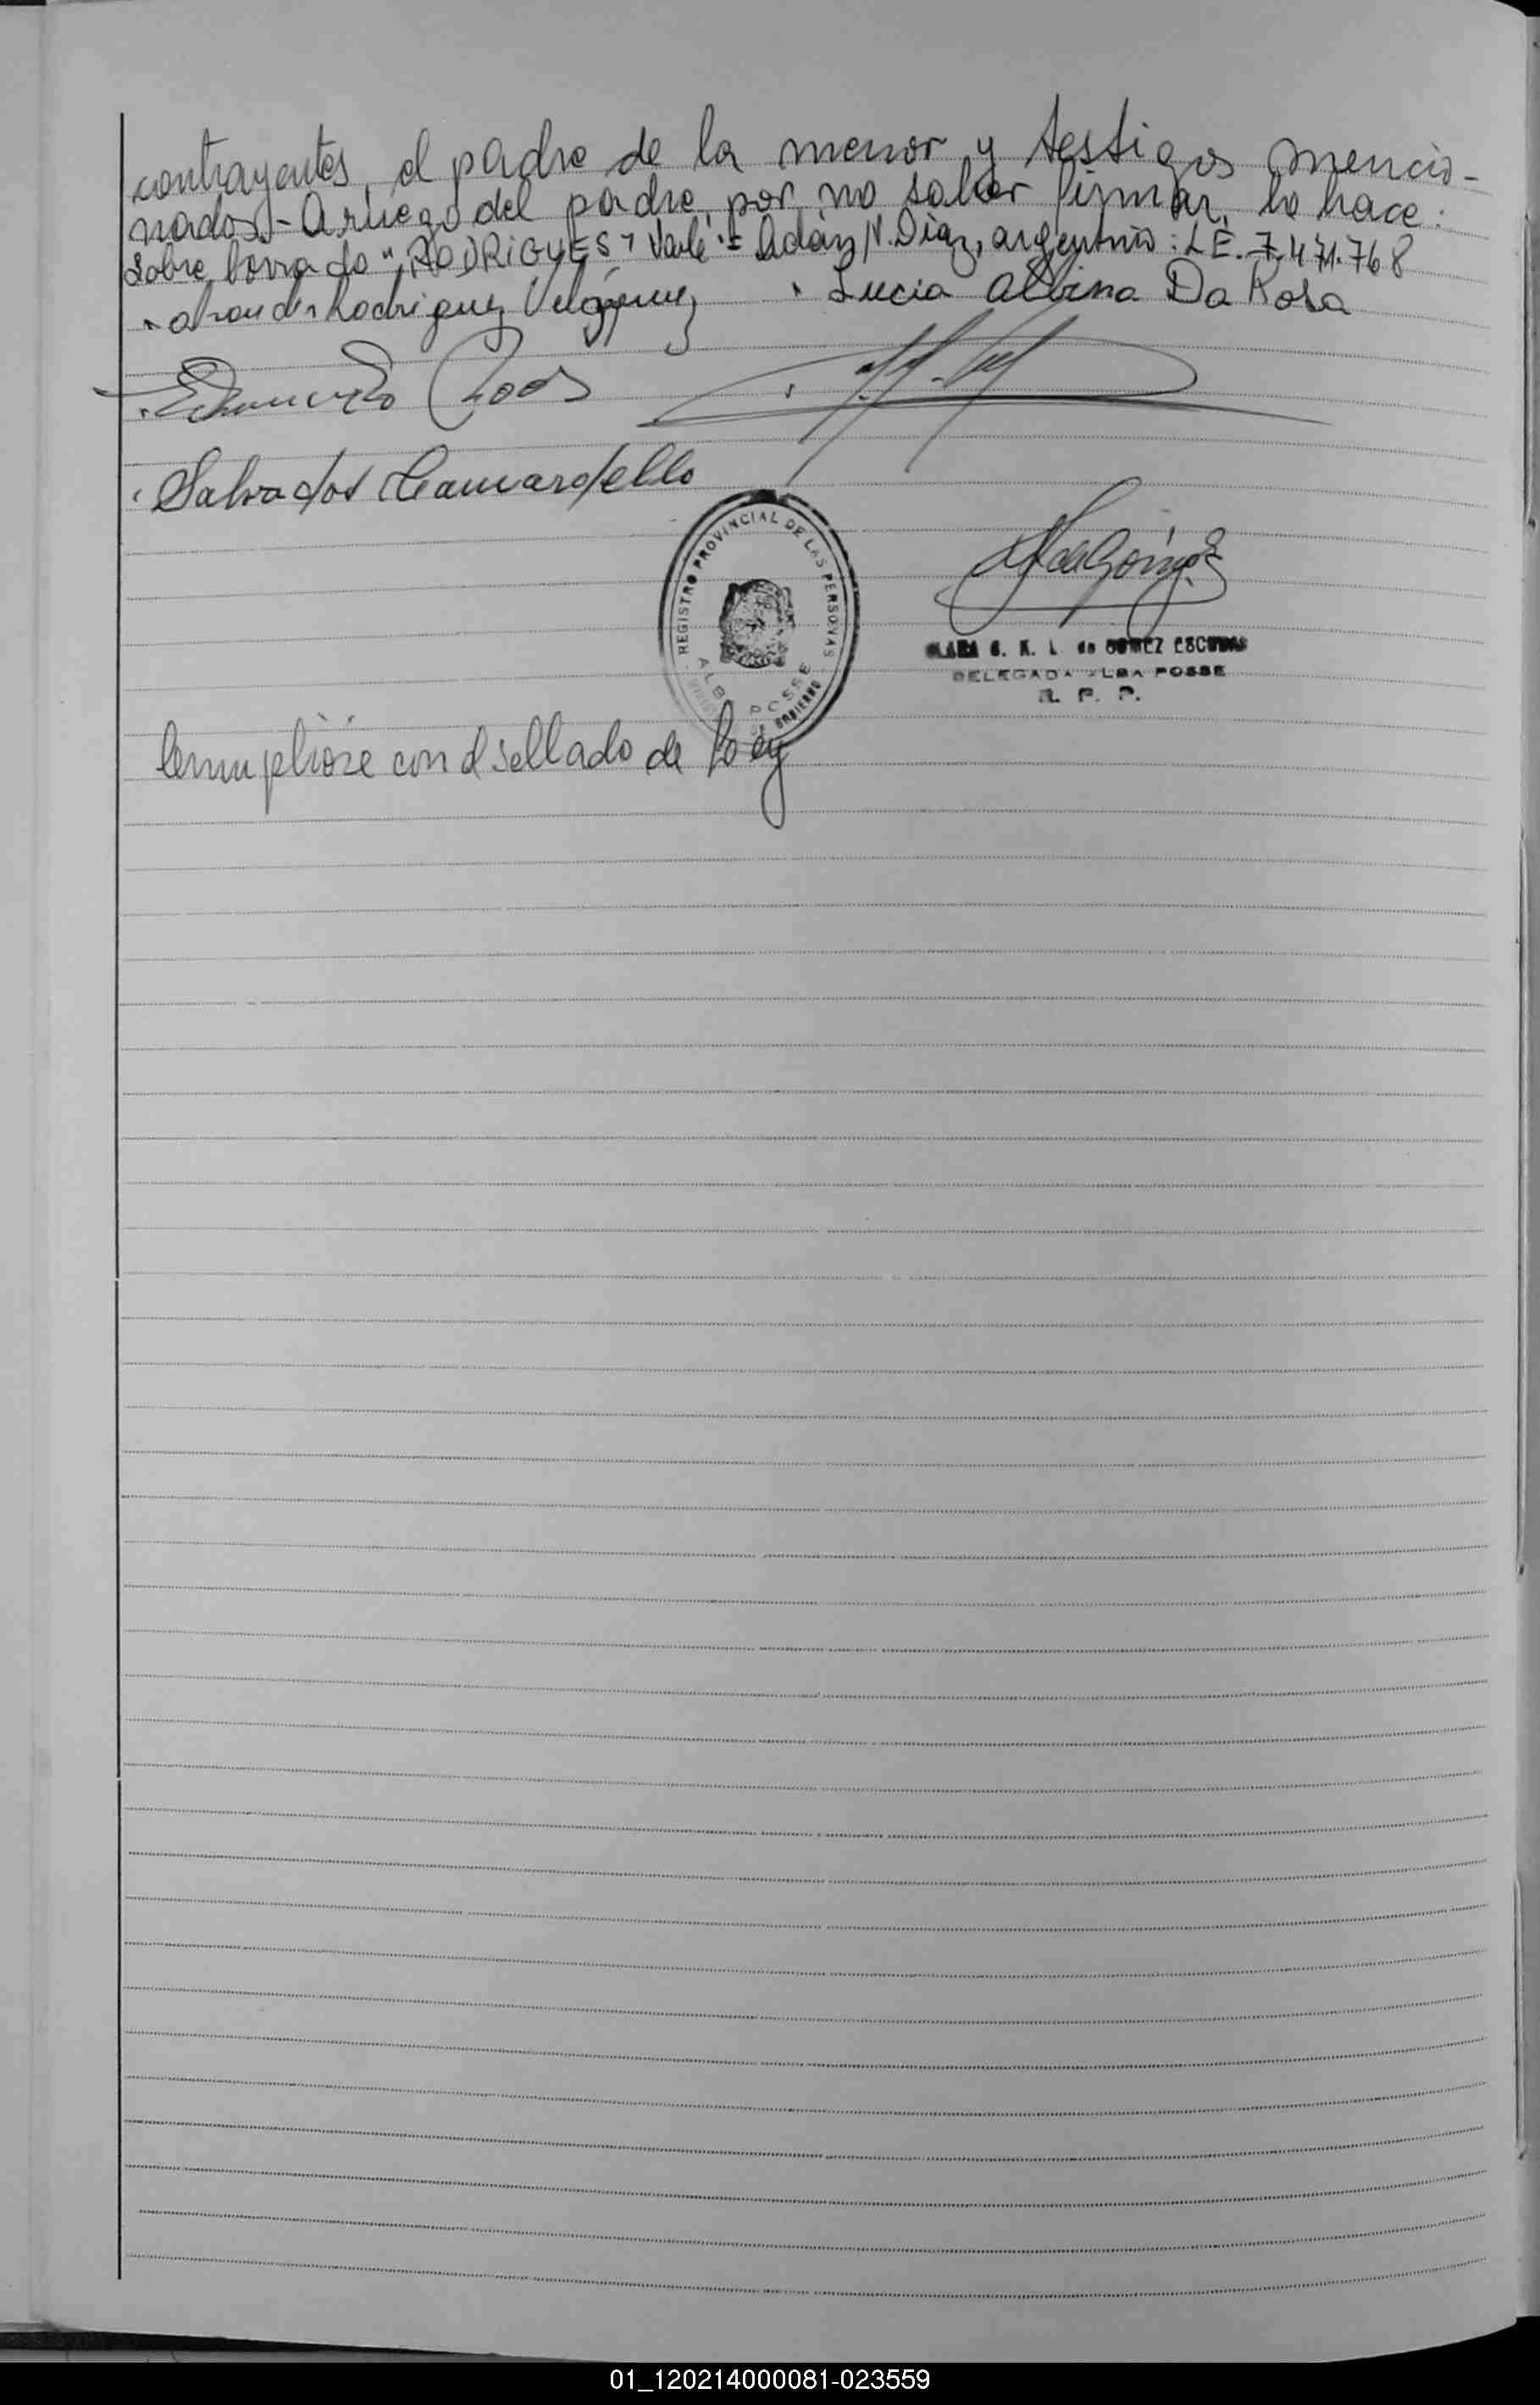 contrayentes, el padre de la menor y testigos mencio-
nados.- A ruego del padre, por no saber firmar, lo hace:
Sobre borrado "RODRIGUES" Vale.= Adán N. Díaz, argentino: L.E. 7.471.768
Rodriguez
Lucia Albina Da Rosa
Salvador Camardello
REGISTRO PROVINCIAL DE LAS PERSONAS
ALBA POSSE
GOBIERNO
G. K. L. de GOMEZ ESCOBAR
DELEGADA ALBA POSSE
R. P. P.
Cumpliose con el sellado de Ley
01_120214000081-023559